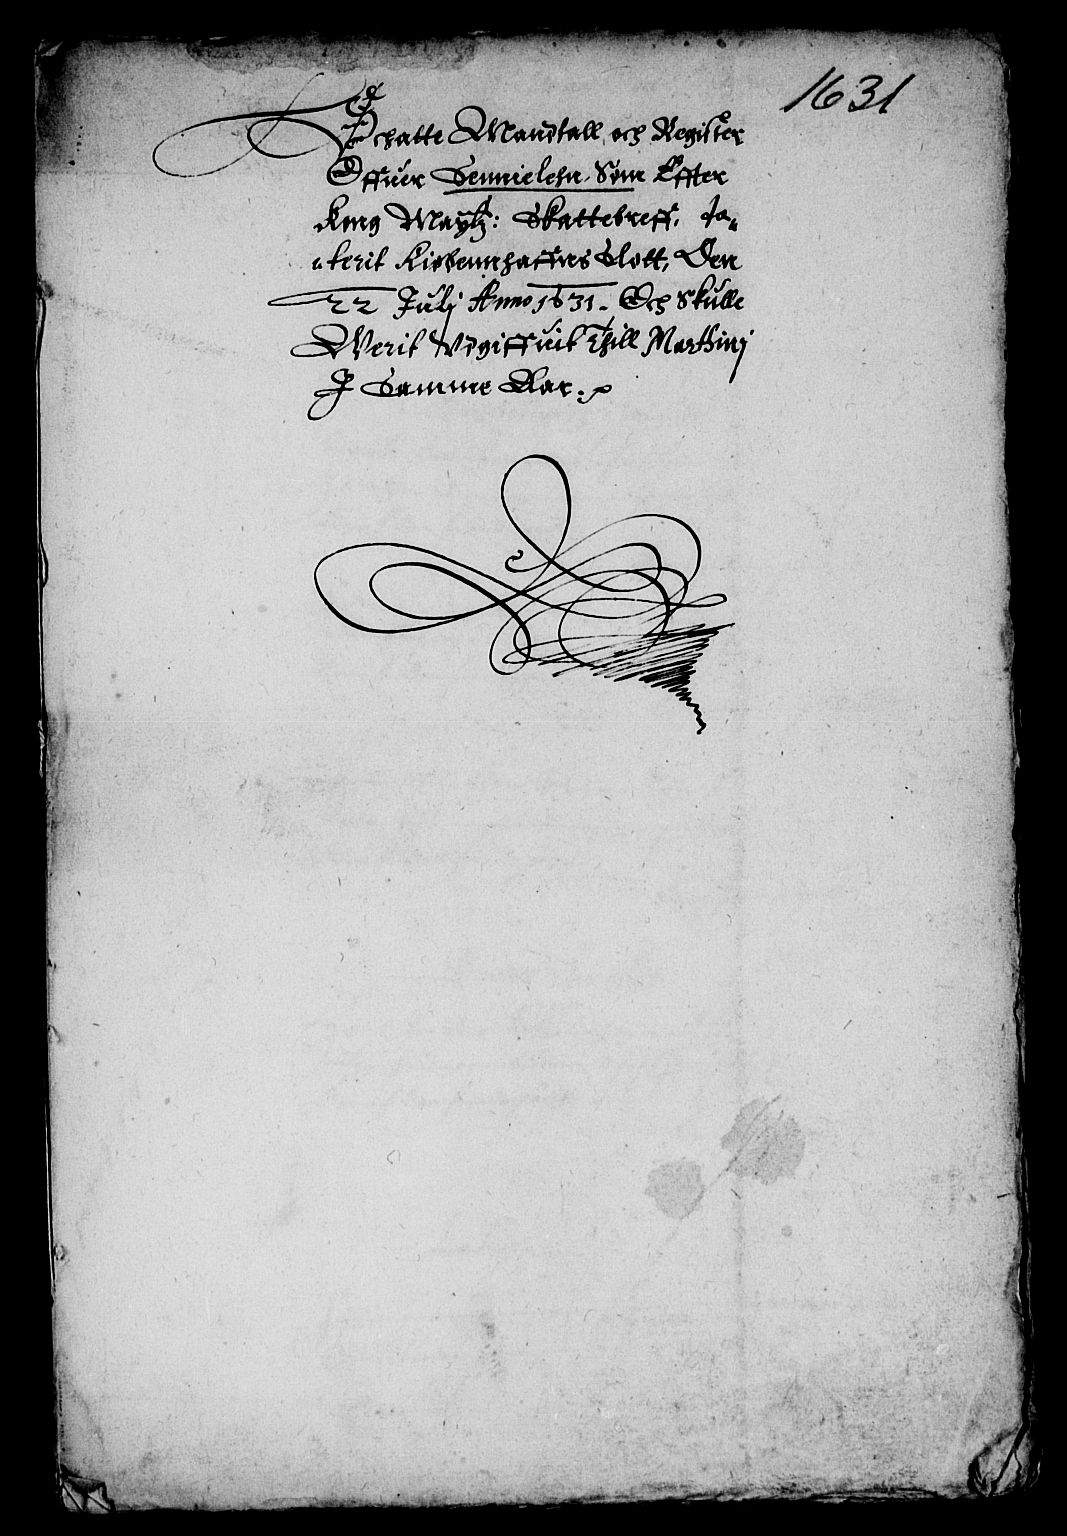 1631
Schatte Mandtall och Register
Offuer Sennielehn Som Effter
Kong Maytz: Skattebreff, da-
terit Kiøbennhaffns Slott, Den
22 Julj Anno 1631. Och Skulle
Werit Vdgiffuit Thill Marthinj
J Samme Aar.